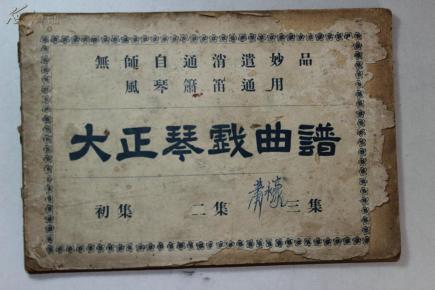 無師自通消遣妙品
風琴簫笛通用
大正琴戲曲譜
初集 二集 三集